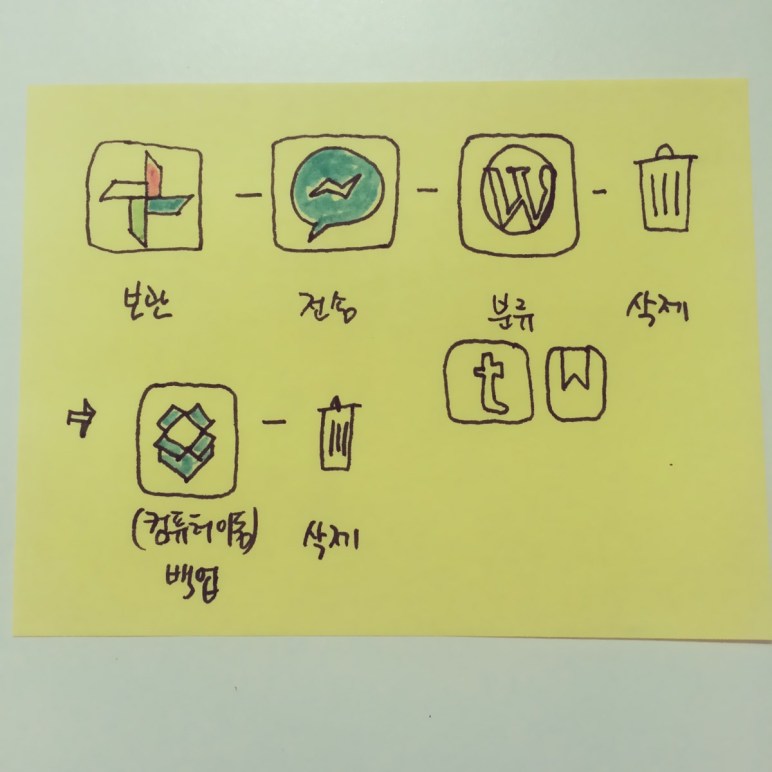 보관 전송 분류 삭제
W
t
(컴퓨터이동) 삭제
백업